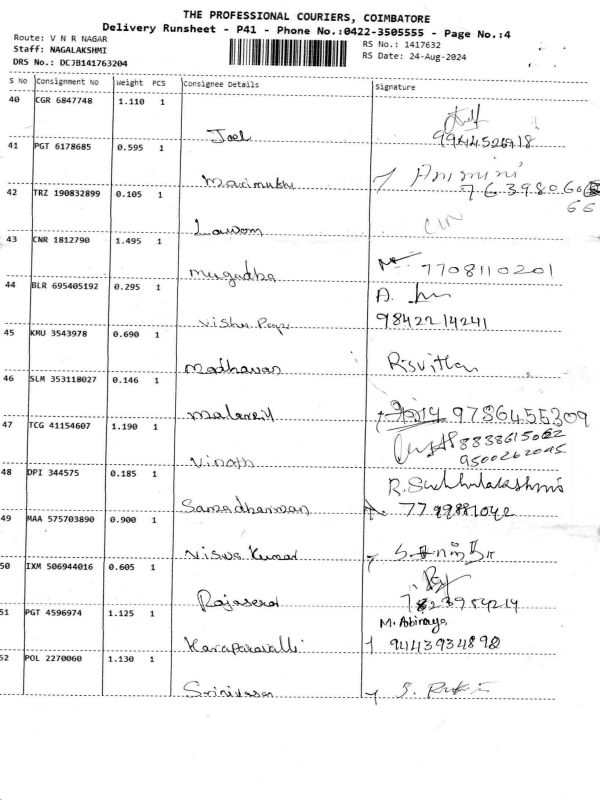 THE PROFESSIONAL COURIERS, COIMBATORE
Delivery Runsheet - P41 - Phone No.:0422-3505555 - Page No.:4
Route: V N R NAGAR
RS No.: 1417632
Staff: NAGALAKSHMI
RS Date: 24-Aug-2024
DRS No.: DCJB141763204
S No Consignment No Weight PCS Consignee Details Signature
40 CGR 6847748 1.110 1
Joel
41 PGT 6178685 0.595 1
Marimuthu
42 TRZ 190832899 0.105 1
43 CNR 1812790 1.495 1
Mugadha 7708110201
44 BLR 695405192 0.295 1
A.
Vishu 9842214241
45 KMU 3543978 0.690 1
Madhavan Risvitha
46 SLM 353118027 0.146 1
9786455309
47 TCG 41154607 1.190 1
Vinoth
48 DPI 344575 0.185 1
R. Sudhulakshmi
49 MAA 575703890 0.900 1
Viswa Kumar
50 IXM 506944016 0.605 1
51 PGT 4596974 1.125 1
M. Abiraya
52 POL 2270060 1.130 1
Srinivasan S.